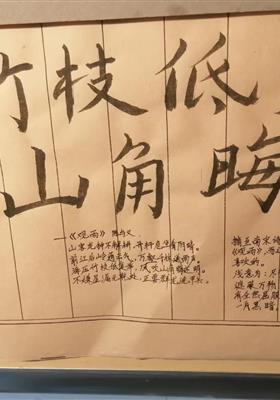 竹枝低
山角晦
《观雨》 陈与义
山客龙钟不解耕,开轩危坐看阴晴。
前江后岭通云气,万壑千林送雨声。
海压竹枝低复举,风吹山角晦还明。
不嫌屋漏无干处,正要群龙洗甲兵。
摘至南宋诗
《观雨》,
喜欢的。
浅意为:尽
万物
有全然
一片黑暗。